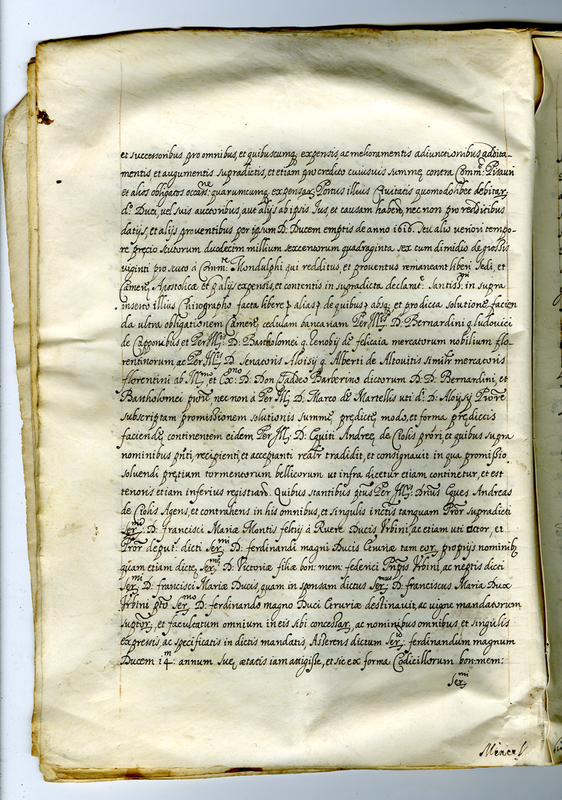 et successoribus pro omnibus, et quibuscumq; expensis, ac melioramentis adiunctionibus, additia-
mentis et augumentis supradictis, et etiam pro credito cuiusuis summe contra Comm.tem Pisauri
et alios obligatos occas.ne quarumcumq; expensar, Portus illius Ciuitatis quomodolibet debitar,
d.o Duci, vel suis auctoribus aut alijs ab ipsis Ius et causam habeñ, nec non pro redditibus
datijs, et alijs prouentibus per ipsum D. Ducem emptis de anno 1616. seu alio veriori tempo-
re precio scutorum duodecim millium sexcentorum quadraginta sex cum dimidio de grossis
viginti pro scuto à Comm.te Mondulphi qui redditus, et prouentus remaneant liberi Sedi, et
Camere Apostolice et alijs expensis, et contentis in supradicta declarat.e Sanctiss.mi in supra
inserto illius Chirographo facta libere alias de quibus absq; et pro dicta solutione facien
da ultra obligationem Camere, cedulam bancariam Per Ill.is D. Bernardini q. ludouici
de Capponibus et Per Ill. D. Bartholomei q. Zenobij de felicaia mercatorum nobilium flo-
rentinorum ac Per Ill. D. Senatoris Aloisij q. Alberti de Altouitis simili mercatoris
florentini ab Ill.mo et Ex.mo D. Don Taddeo Barberino dictorum D. D. Bernardini, et
Bartholomei et nec non a Per Ill. D. Marco de Martellis uti d. D. Aloysij Prore
subscriptam promissionem solutionis summe predicte, modo, et forma predictis
faciende, continentem eidem Per Ill. D. Equiti Andree, de Ciolis et quibus supra
nominibus pnti, recipienti, et acceptanti realr tradidit, et consignauit in qua promissio
soluendi pretium tormentorum bellicorum ut infra dicetur etiam continetur, et est
tenoris etiam inferius registrañ. Quibus stantibus ptus Per Ill. Dnus Eques Andreas
de Ciolis Agens, et contrahens in his omnibus, et singulis tanquam Pror supradicti
Ser.mi D. Francisci Marie Montis feltrij à Ruere Ducis Urbini, ac etiam uti et
Pror deput. dicti Ser.mi D. ferdinandi magni Ducis Etrurie tam eor, proprijs nominib,
quam etiam dicte Ser.me D. Victorie filie bon: mem: federici Pnpis Urbini, ac neptis dicti
Ser.mi D. francisci Marie Ducis, quam in sponsam dictus Ser.mus D. franciscus Maria Dux
Urbini pto Ser.mo D. ferdinando magno Duci Etrurie destinauit, ac vigore mandatorum
suptor, et facultatum omnium in eis sibi concessar, ac nominibus omnibus, et singulis
expressis, ac specificatis in dictis mandatis, Asserens dictum Ser. ferdinandum magnum
Ducem 14.m annum sue, etatis iam attigisse, et sic ex forma Codicillorum bon: mem:
Ser.mi